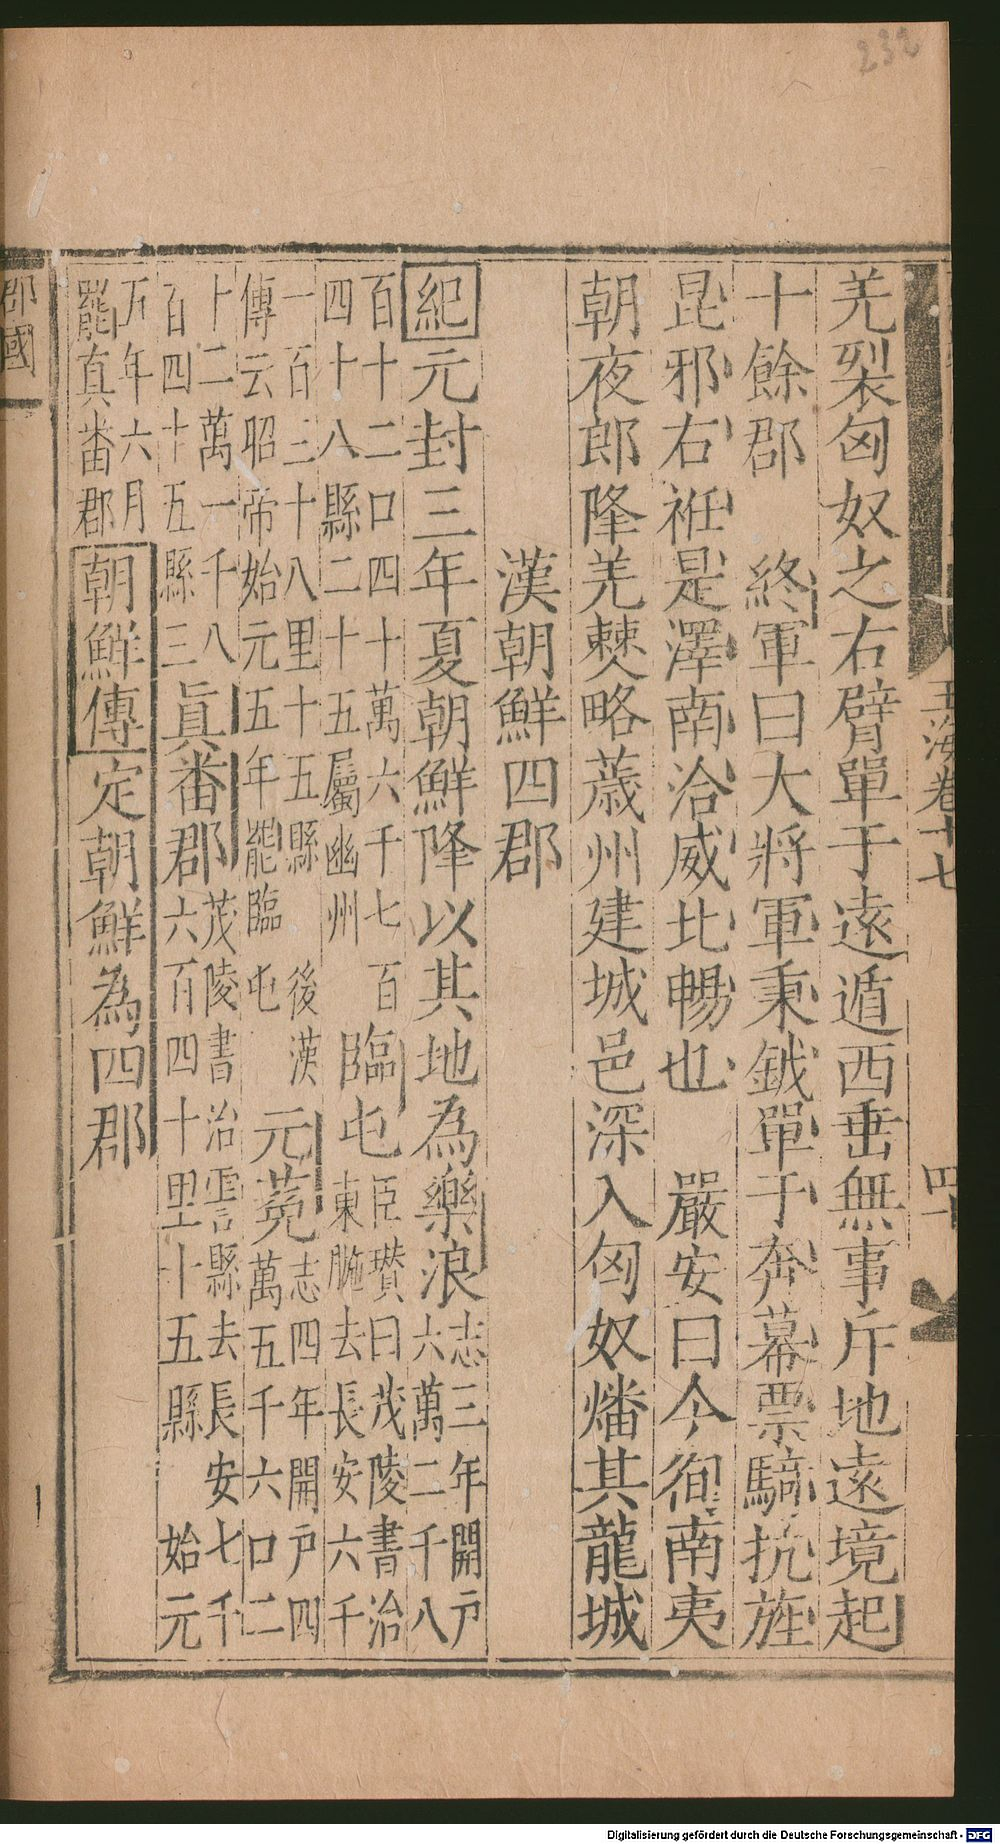 232
玉海卷十七
羌裂匈奴之右臂單于遠遁西垂無事斥地遠境起
十餘郡　終軍曰大將軍秉鉞單于奔幕票騎抗旌
昆邪右衽是澤南洽威北暢也　嚴安曰今徇南夷
朝夜郎隆羌僰略薉州建城邑深入匈奴燔其龍城
漢朝鮮四郡
紀元封三年夏朝鮮降以其地為樂浪志三年開戶六萬二千八
百十二口四十萬六千七百四十八縣二十五屬幽州臨屯臣瓚曰茂陵書治東暆去長安六千
一百三十八里十五縣　後漢傳云昭帝始元五年罷臨屯元菟志四年開戶四萬五千六口二
十二萬一千八百四十五縣三眞番郡茂陵書治霅縣去長安七千六百四十里十五縣　始元
五年六月罷真番郡朝鮮傳定朝鮮為四郡
郡國
Digitalisierung gefördert durch die Deutsche Forschungsgemeinschaft - DFG